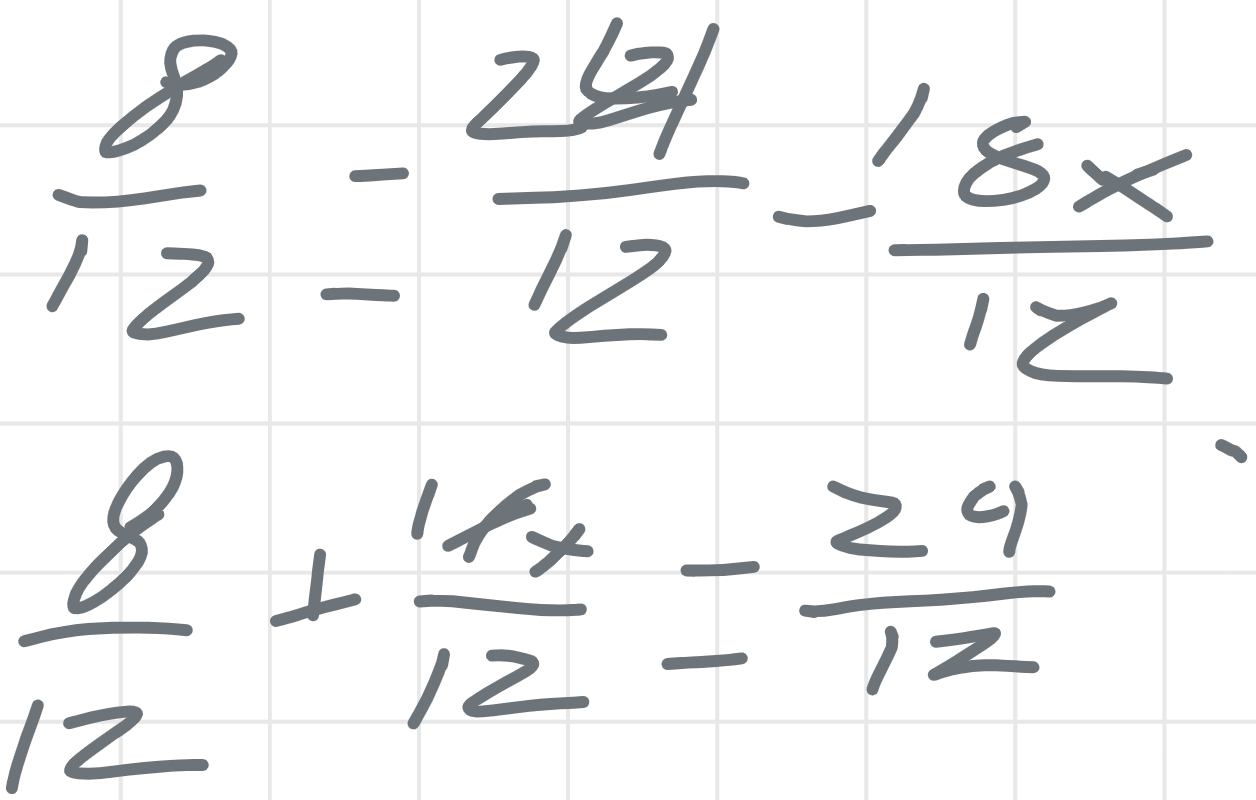 8/12 = 24/12 - 18x/12
8/12 + 18x/12 = 24/12